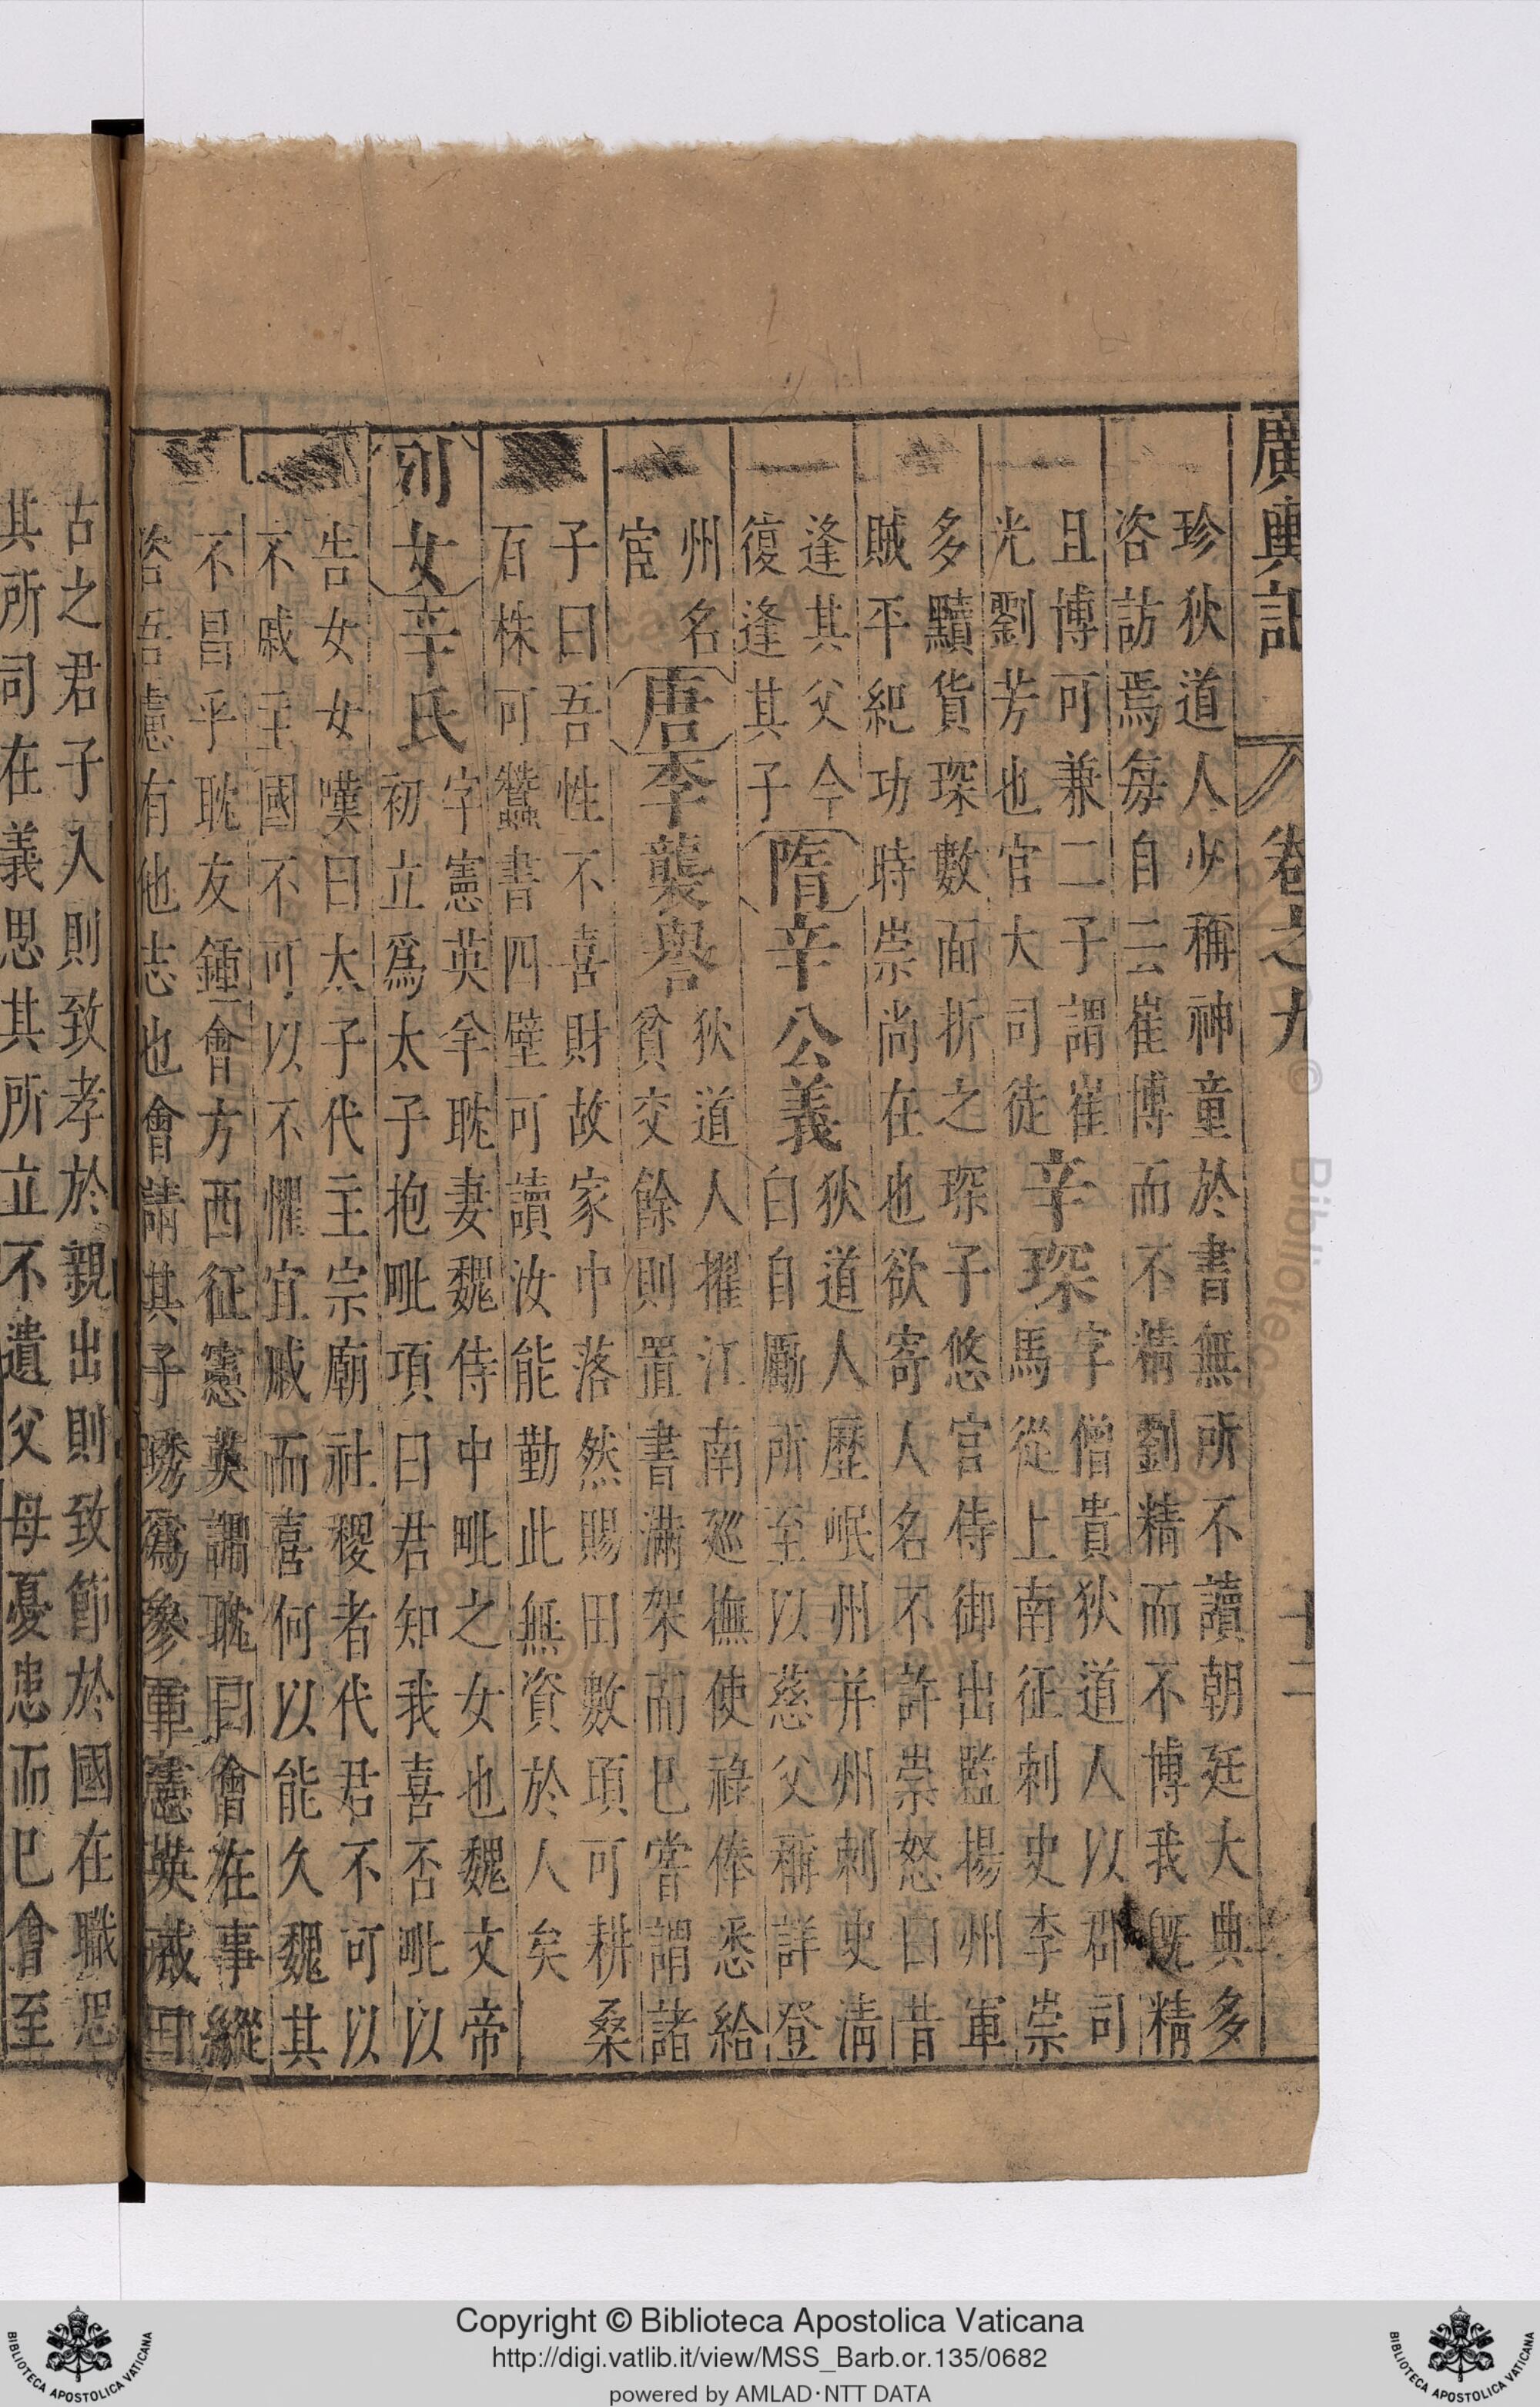 廣輿記 卷之九 十二
珍狄道人少稱神童於書無所不讀朝廷大典多
咨訪焉每自云崔博而不精劉精而不博我旣精
且博可兼二子謂崔
光劉芳也官大司徒
辛琛
字僧貴狄道人以郡司
馬從上南征刺史李崇
多黷貨琛數面折之琛子悠官侍御出監揚州軍
賊平紀功時崇尚在也欲寄人名不許崇怒曰昔
逢其父今
復逢其子
隋
辛公義
狄道人歷岷州并州刺史淸
白自勵所至以慈父稱詳登
州名
宦
唐
李襲譽
狄道人擢江南廵撫使祿俸悉給
貧交餘則置書滿架而已嘗謂諸
子曰吾性不喜財故家中落然賜田數頃可耕桑
百株可蠶書四壁可讀汝能勤此無資於人矣
列女
辛氏
字憲英羊耽妻魏侍中毗之女也魏文帝
初立爲太子抱毗項曰君知我喜否毗以
告女女嘆曰太子代主宗廟社稷者代君不可以
不戚主國不可以不懼宜戚而喜何以能久魏其
不昌乎耽友鍾會方西征憲英謂耽曰會在事縱
恣吾慮有他志也會請其子琇爲參軍憲英戒曰
古之君子入則致孝於親出則致節於國在職思
其所司在義思其所立不遺父母憂患而已會至
Copyright © Biblioteca Apostolica Vaticana
http://digi.vatlib.it/view/MSS_Barb.or.135/0682
powered by AMLAD·NTT DATA
BIBLIOTECA APOSTOLICA VATICANA
BIBLIOTECA APOSTOLICA VATICANA